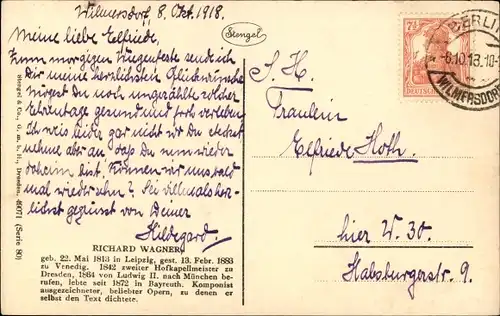 Wilmersdorf, 8. Okt. 1918.
Meine liebe Elfriede,
Zum morgigen Wiegenfeste send ich
Dir meine herzlichsten Glückwünsche
Mögest Du noch ungezählte solcher
Ehrentage gesund und froh verleben.
Ich weis leider gar nicht wo Du steckst
nehme aber an daß Du nun wieder
daheim bist. Können wir uns bald
mal wieder sehn? Sei vielmals herz-
lichst gegrüsst von Deiner
Hildegard.
RICHARD WAGNER
geb. 22. Mai 1813 in Leipzig, gest. 13. Febr. 1883
zu Venedig. 1842 zweiter Hofkapellmeister zu
Dresden, 1864 von Ludwig II. nach München be-
rufen, lebte seit 1872 in Bayreuth. Komponist
ausgezeichneter, beliebter Opern, zu denen er
selbst den Text dichtete.
Stengel & Co., G. m. b. H., Dresden. 49071 (Serie 80)
Stengel
S. H.
Fräulein
Elfriede Hoth.
hier W. 30.
Habsburgerstr. 9.
7½
DEUTSCHES
BERLIN
-8.10.18.10-1
WILMERSDORF